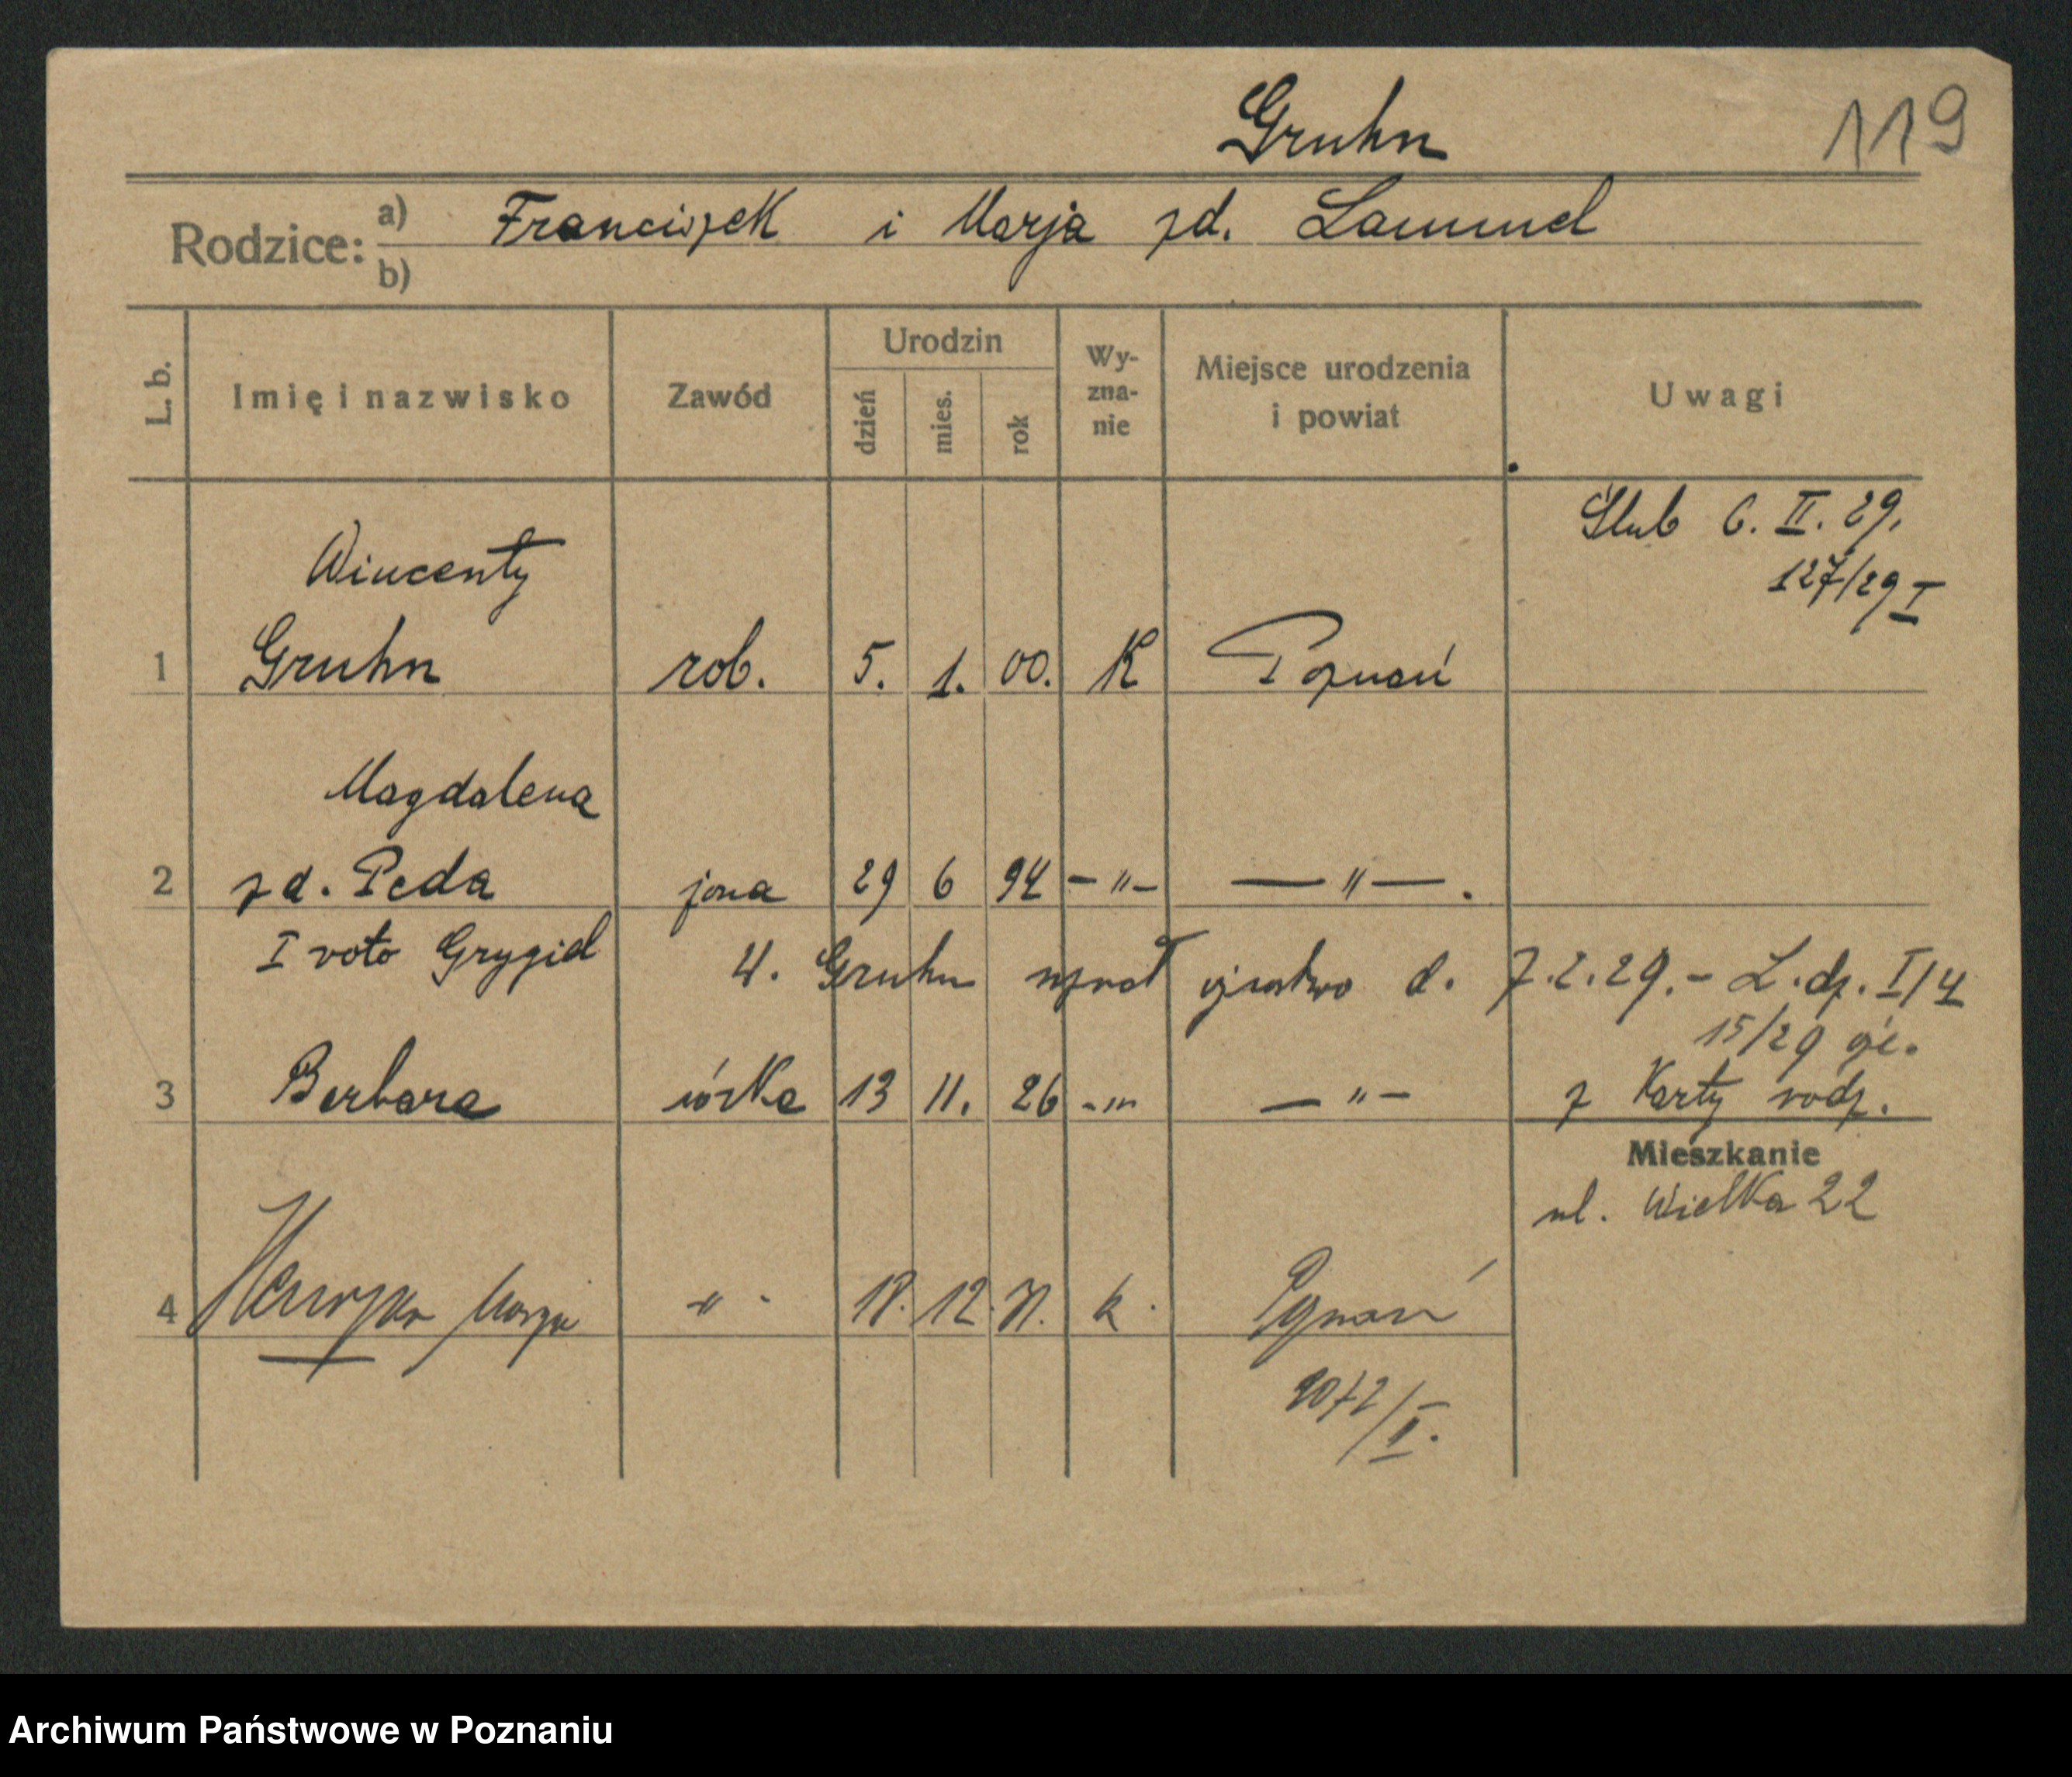 Gruhn
119
Rodzice: a) Franciszek i Marja zd. Lammel
b)
L. b. Imię i nazwisko Zawód Urodzin dzień mies. rok Wy-zna-nie Miejsce urodzenia i powiat Uwagi
Ślub 6. II. 29.
127/29 I
Wincenty
1 Gruhn rob. 5. 1. 00. K Poznań
Magdalena
2 zd. Peda żona 29 6 94 -"- -"-.
I voto Grygiel W. Gruhn uznał ojcostwo d. 7.2.29.- L.dz. I/4
15/29
3 Barbara córka 13 11. 26 -"- -"- z Karty rodz.
Mieszkanie
ul. Wielka 22
4 Marja -"- 18. 12. 31. k. Poznań
2072/II.
Archiwum Państwowe w Poznaniu